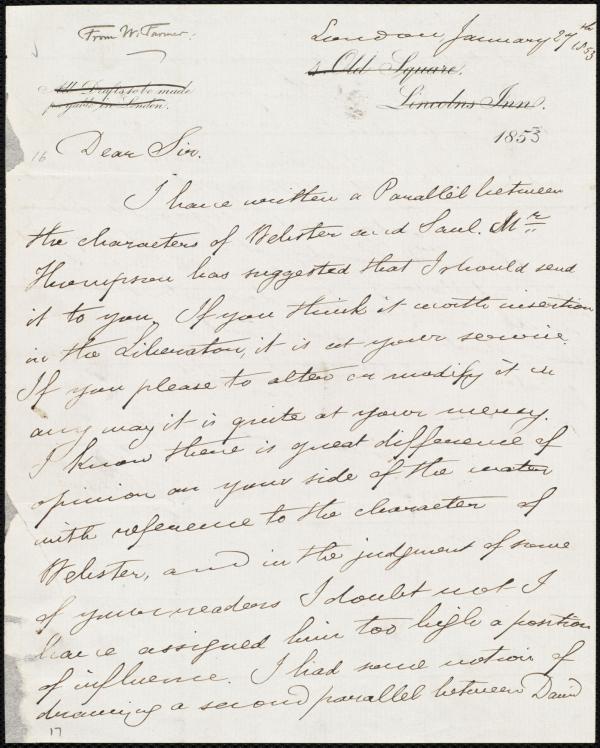 From W. Farmer.
London January 27th 1853
4 Old Square.
All Drafts to be made
payable in London.
Lincolns Inn.
1853
16 Dear Sir.
I have written a Parallel between
the characters of Webster and Saul. Mr
Thompson has suggested that I should send
it to you. If you think it worth insertion
in the Liberator, it is at your service.
If you please to alter or modify it in
any way it is quite at your mercy.
I know there is great difference of
opinion on your side of the water
with reference to the character of
Webster, and in the judgment of some
of your readers I doubt not I
have assigned him too high a position
of influence. I had some notion of
drawing a second parallel between David
17